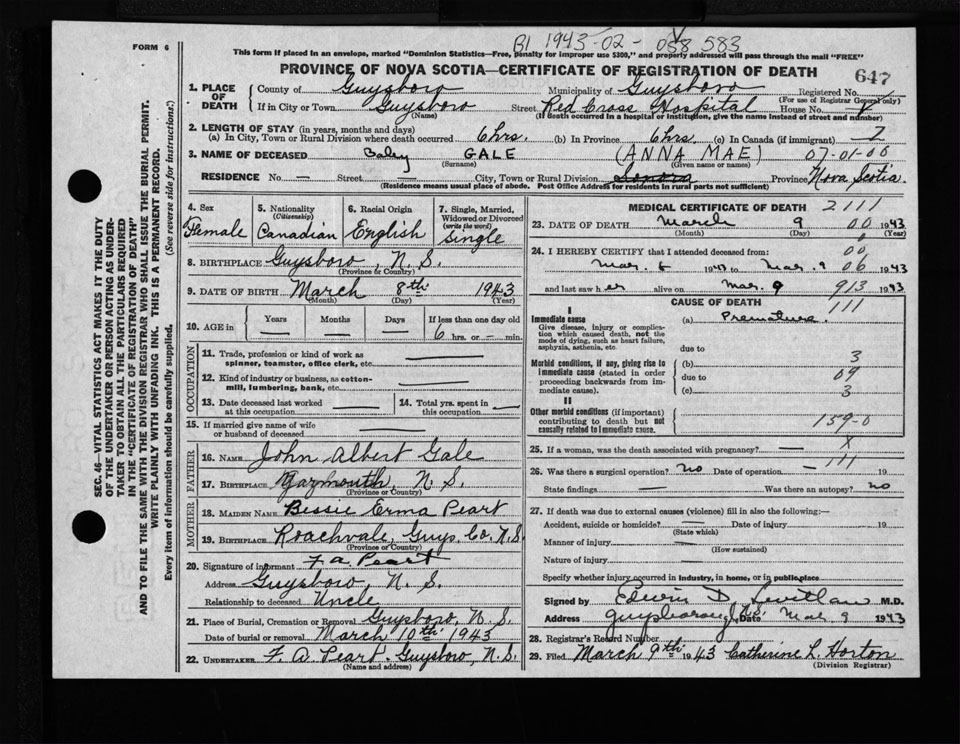 B1 1943-02-058583
FORM 6
This form if placed in an envelope, marked "Dominion Statistics—Free, penalty for improper use $300," and properly addressed will pass through the mail "FREE"
PROVINCE OF NOVA SCOTIA—CERTIFICATE OF REGISTRATION OF DEATH
647
1. PLACE OF DEATH
County of Guysboro Municipality of Guysboro Registered No.
(For use of Registrar General only)
If in City or Town Guysboro Street Red Cross Hospital House No.
(Name) (If death occurred in a hospital or institution, give the name instead of street and number)
2. LENGTH OF STAY (in years, months and days)
(a) In City, Town or Rural Division where death occurred 6 hrs. (b) In Province 6 hrs. (c) In Canada (if immigrant) 7
3. NAME OF DECEASED Baby GALE (ANNA MAE) 07-01-00
(Surname) (Given name or names)
RESIDENCE No. — Street — City, Town or Rural Division Sonora Province Nova Scotia.
(Residence means usual place of abode. Post Office Address for residents in rural parts not sufficient)
SEC. 46—VITAL STATISTICS ACT MAKES IT THE DUTY
OF THE UNDERTAKER OR PERSON ACTING AS UNDER-
TAKER TO OBTAIN ALL THE PARTICULARS REQUIRED
IN THE "CERTIFICATE OF REGISTRATION OF DEATH"
AND TO FILE THE SAME WITH THE DIVISION REGISTRAR WHO SHALL ISSUE THE BURIAL PERMIT.
WRITE PLAINLY WITH UNFADING INK. THIS IS A PERMANENT RECORD.
Every item of information should be carefully supplied. (See reverse side for instructions.)
4. Sex
Female
5. Nationality
(Citizenship)
Canadian
6. Racial Origin
English
7. Single, Married, Widowed or Divorced
(write the word)
Single
8. BIRTHPLACE Guysboro, N.S.
(Province or Country)
9. DATE OF BIRTH March 8th 1943
(Month) (Day) (Year)
10. AGE in Years Months Days If less than one day old
6 hrs. or — min.
OCCUPATION
11. Trade, profession or kind of work as
spinner, teamster, office clerk, etc. —
12. Kind of industry or business, as cotton-
mill, lumbering, bank, etc. —
13. Date deceased last worked
at this occupation —
14. Total yrs. spent in
this occupation —
15. If married give name of wife
or husband of deceased —
FATHER
16. NAME John Albert Gale
17. BIRTHPLACE Yarmouth, N.S.
(Province or Country)
MOTHER
18. MAIDEN NAME Bessie Erma Peart
19. BIRTHPLACE Roachvale, Guys. Co. N.S.
(Province or Country)
20. Signature of informant F. A. Peart
Address Guysboro, N.S.
Relationship to deceased Uncle
21. Place of Burial, Cremation or Removal Guysboro, N.S.
Date of burial or removal March 10th 1943
22. UNDERTAKER F. A. Peart. Guysboro, N.S.
(Name and address)
MEDICAL CERTIFICATE OF DEATH 2111
23. DATE OF DEATH March 9 00 1943
(Month) (Day) (Year)
24. I HEREBY CERTIFY that I attended deceased from: 00
Mar. 8 1943 to Mar. 9 06 1943
and last saw her alive on Mar. 9 913 1943
CAUSE OF DEATH
111
I
Immediate cause
Give disease, injury or complica-
tion which caused death, not the
mode of dying, such as heart failure,
asphyxia, asthenia, etc.
(a) Premature.
due to
Morbid conditions, if any, giving rise to
immediate cause (stated in order
proceeding backwards from im-
mediate cause).
(b) 3
due to 09
(c) 3
II
Other morbid conditions (if important)
contributing to death but not
causally related to immediate cause.
159-0
X
25. If a woman, was the death associated with pregnancy? —
111
26. Was there a surgical operation? no Date of operation — 19
State findings — Was there an autopsy? no
27. If death was due to external causes (violence) fill in also the following:—
Accident, suicide or homicide? — Date of injury 19
(State which)
Manner of injury —
(How sustained)
Nature of injury —
Specify whether injury occurred in industry, in home, or in public place
Signed by Edwin D. M.D.
Address Guysborough N.S. Date Mar. 9 1943
28. Registrar's Record Number
29. Filed March 9th 1943 Catherine L. Horton
(Division Registrar)